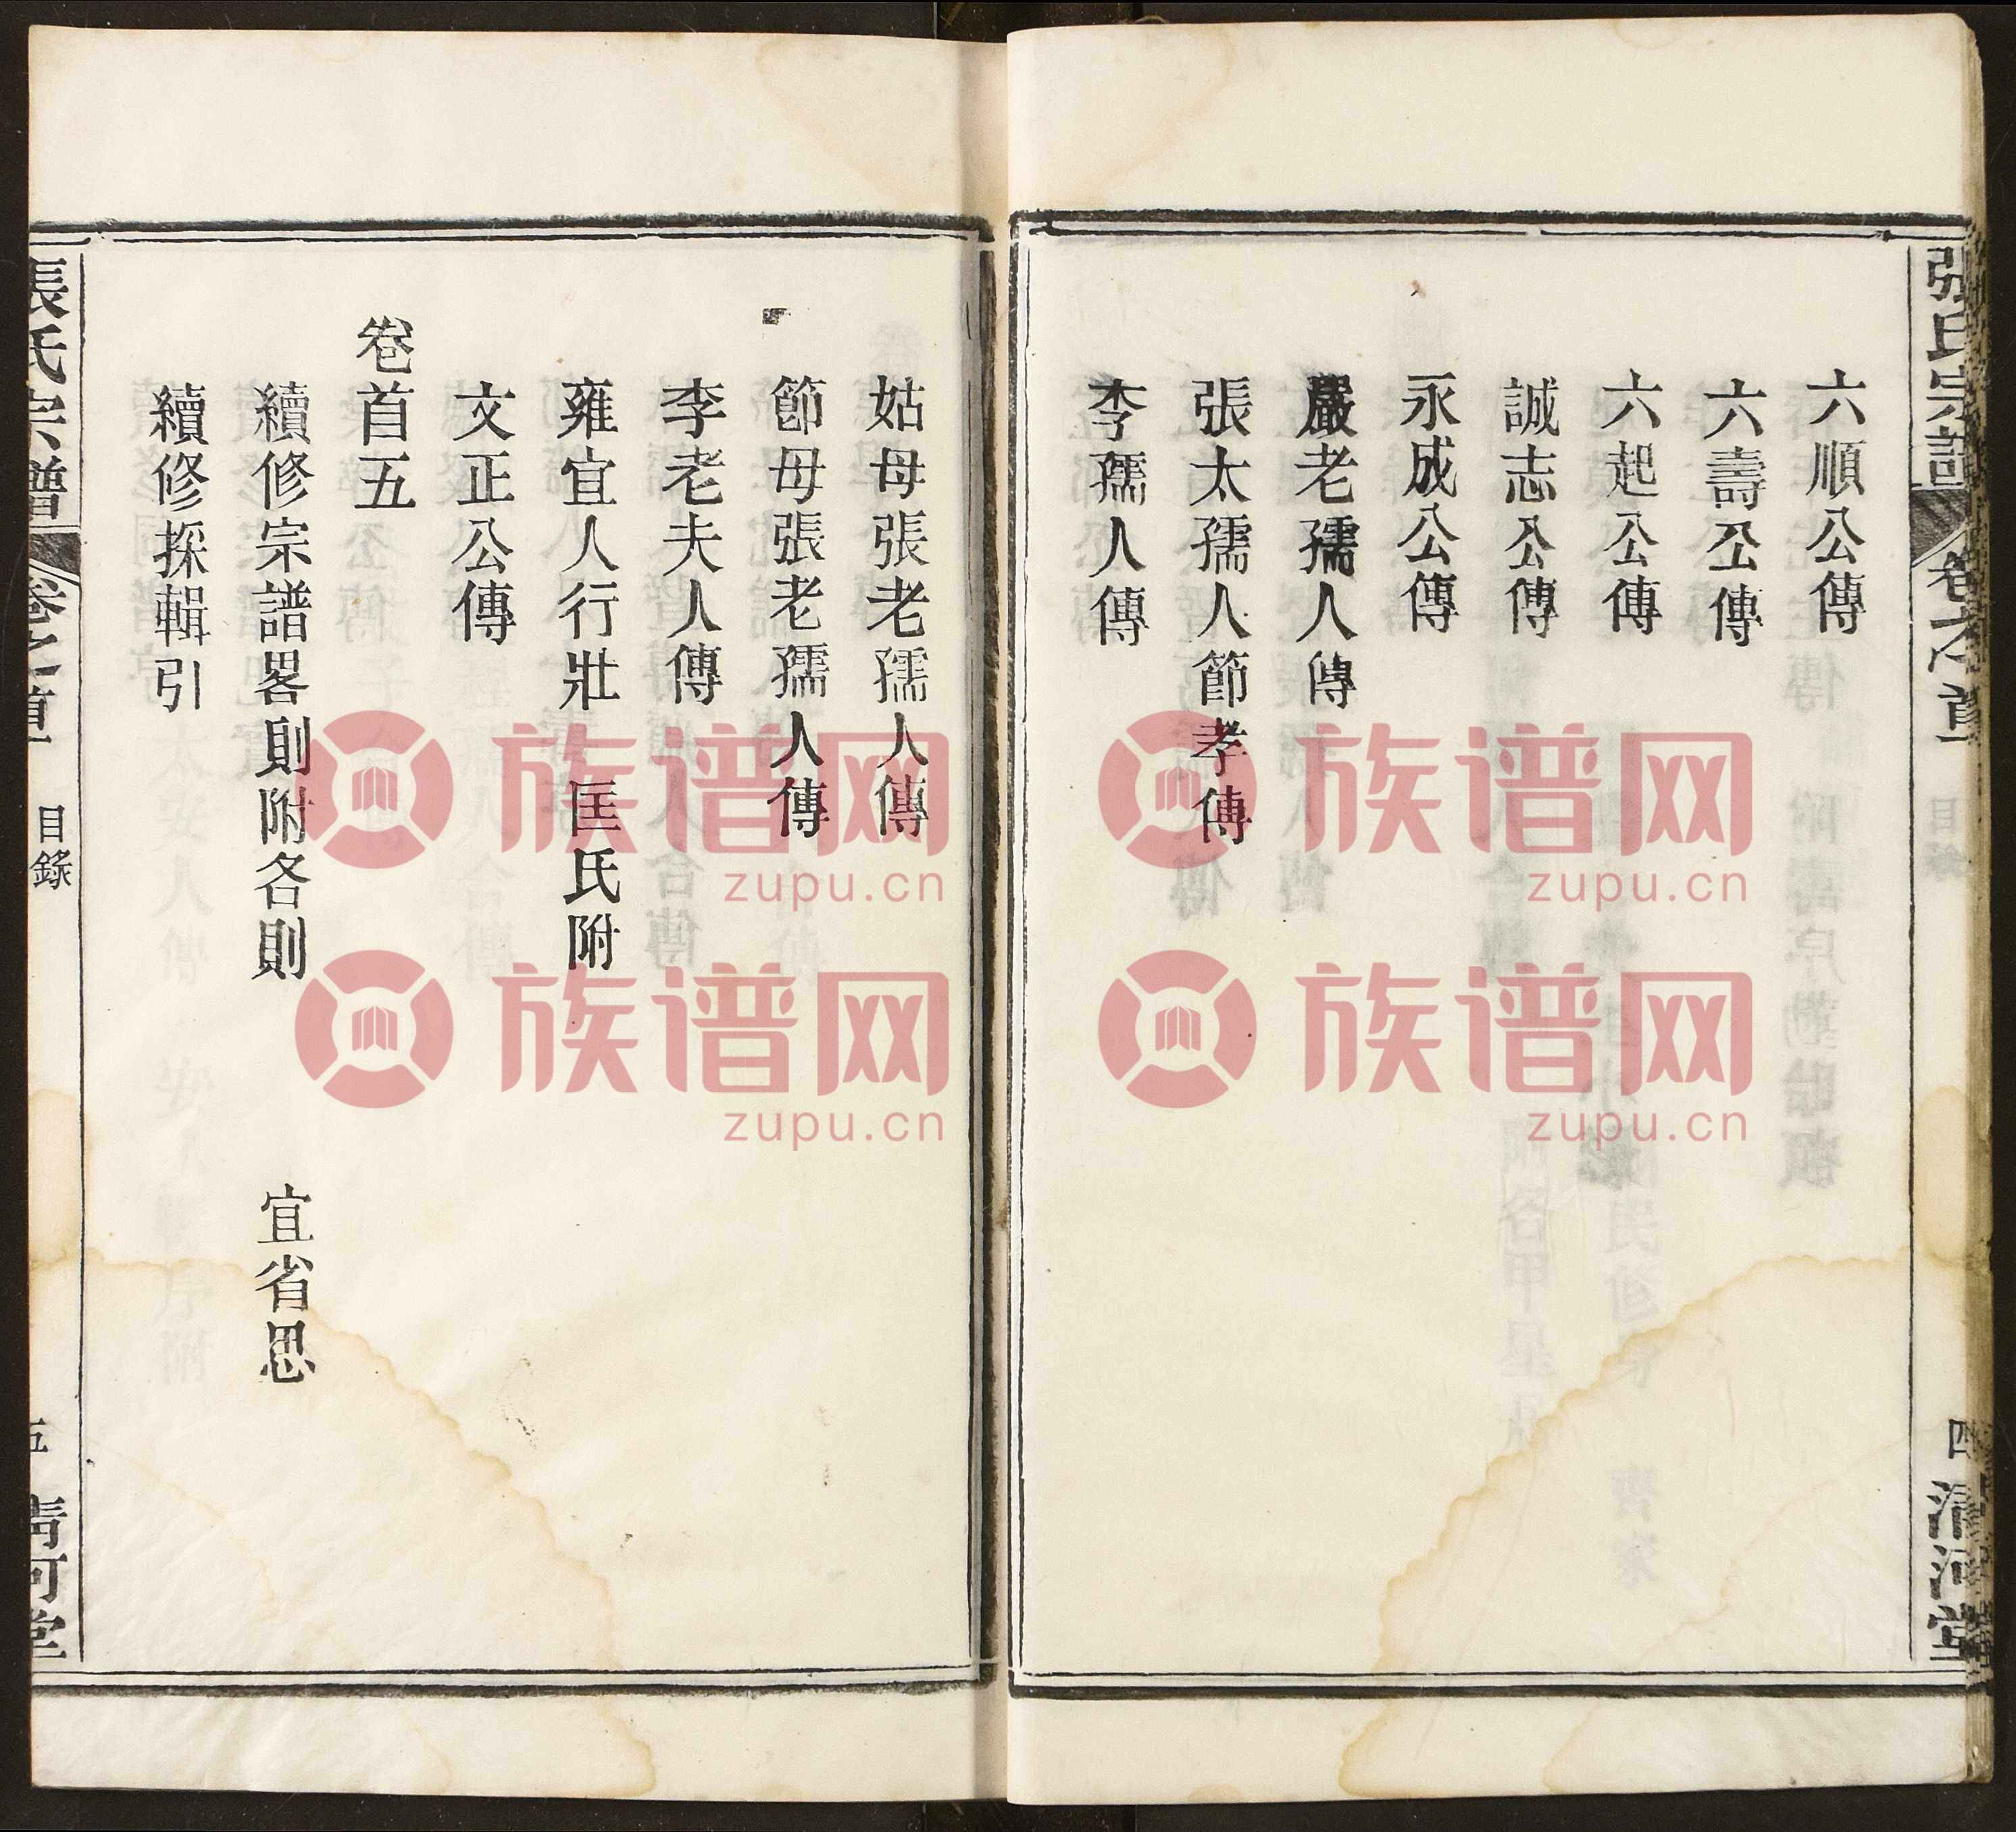 張氏宗譜 卷之首 目錄 四 清河堂
六順公傳
六壽公傳
六起公傳
誠志公傳
永成公傳
嚴老孺人傳
張太孺人節孝傳
李孺人傳
姑母張老孺人傳
節母張老孺人傳
李老夫人傳
雍宜人行壯 匡氏附
文正公傳
卷首五
續修宗譜畧則附各則 宜省思
續修採輯引
張氏宗譜 卷之首 目錄 五 清河堂
族谱网
zupu.cn
族谱网
zupu.cn
族谱网
zupu.cn
族谱网
zupu.cn